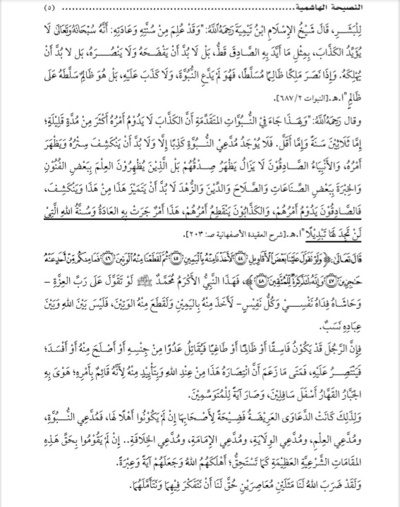 النصيحة الهاشمية (٥)
لِلْبَشَرِ، قَالَ شَيْخُ الإِسْلَامِ ابْنُ تَيْمِيَةَ رَحِمَهُ اللهُ: "وَقَدْ عُلِمَ مِنْ سُنَّتِهِ وَعَادَتِهِ: أَنَّهُ سُبْحَانَهُ وَتَعَالَى لَا
يُؤَيِّدُ الْكَذَّابَ، بِمِثْلِ مَا أَيَّدَ بِهِ الصَّادِقَ قَطُّ، بَلْ لَا بُدَّ أَنْ يَفْضَحَهُ وَلَا يَنْصُرَهُ، بَلْ لَا بُدَّ أَنْ
يُهْلِكَهُ. وَإِذَا نَصَرَ مَلِكًا ظَالِمًا مُسَلَّطًا، فَهُوَ لَمْ يَدَّعِ النُّبُوَّةَ، وَلَا كَذَبَ عَلَيْهِ، بَلْ هُوَ ظَالِمٌ سَلَّطَهُ عَلَى
ظَالِمٍ" ا.هـ.[النبوات ٢/ ٦٨٧].
وقال رَحِمَهُ اللهُ: "وَبِهَذَا جَاءَ فِي النُّبُوَّاتِ الْمُتَقَدِّمَةِ أَنَّ الْكَذَّابَ لَا يَدُومُ أَمْرُهُ أَكْثَرَ مِنْ مُدَّةٍ قَلِيلَةٍ؛
إِمَّا ثَلَاثِينَ سَنَةً وَإِمَّا أَقَلَّ. فَلَا يُوجَدُ مُدَّعِي النُّبُوَّةِ كَذِبًا إِلَّا وَلَا بُدَّ أَنْ يَنْكَشِفَ سِتْرُهُ وَيَظْهَرَ
أَمْرُهُ، وَالْأَنْبِيَاءُ الصَّادِقُونَ لَا يَزَالُ يَظْهَرُ صِدْقُهُمْ بَلْ الَّذِينَ يُظْهِرُونَ الْعِلْمَ بِبَعْضِ الْفُنُونِ
وَالْخِبْرَةَ بِبَعْضِ الصِّنَاعَاتِ وَالصَّلَاحَ وَالدِّينَ وَالزُّهْدَ لَا بُدَّ أَنْ يَتَمَيَّزَ هَذَا مِنْ هَذَا وَيَنْكَشِفَ،
فَالصَّادِقُونَ يَدُومُ أَمْرُهُمْ، وَالْكَذَّابُونَ يَنْقَطِعُ أَمْرُهُمْ، هَذَا أَمْرٌ جَرَتْ بِهِ الْعَادَةُ وَسُنَّةُ اللهِ الَّتِيْ
لَنْ تَجِدَ لَهَا تَبْدِيْلًا" ا.هـ.[شرح العقيدة الأصفهانية ص: ٢٠٣].
قَالَ تَعَالَى: ﴿وَلَوْ تَقَوَّلَ عَلَيْنَا بَعْضَ الْأَقَاوِيلِ ٤٤ لَأَخَذْنَا مِنْهُ بِالْيَمِينِ ٤٥ ثُمَّ لَقَطَعْنَا مِنْهُ الْوَتِينَ ٤٦ فَمَا مِنكُم مِّنْ أَحَدٍ عَنْهُ
حَاجِزِينَ ٤٧ وَإِنَّهُ لَتَذْكِرَةٌ لِّلْمُتَّقِينَ ٤٨﴾، فَهَذَا النَّبِيُّ الْأَكْرَمُ مُحَمَّدٌ ﷺ لَوْ تَقَوَّلَ عَلَى رَبِّ الْعِزَّةِ –
وَحَاشَاهُ فِدَاهُ نَفْسِيْ وَكُلُّ نَفِيْسٍ– لَأَخَذَ مِنْهُ بِالْيَمِينِ وَلَقَطَعَ مِنْهُ الْوَتِينَ، فَلَيْسَ بَيْنَ اللهِ وَبَيْنَ
عِبَادِهِ نَسَبٌ.
فَإِنَّ الرَّجُلَ قَدْ يَكُوْنُ فَاسِقًا أَوْ ظَالِمًا أَوْ طَاغِيًا فَيُقَاتِلُ عَدُوًّا مِنْ جِنْسِهِ أَوْ أَصْلَحَ مِنْهُ أَوْ أَفْسَدَ؛
فَيَنْتَصِرُ عَلَيْهِ، فَمَتَى مَا زَعَمَ أَنَّ انْتِصَارَهُ هَذَا مِنْ عِنْدِ اللهِ وَبِتَأْيِيدٍ مِنْهُ لِأَنَّهُ قَائِمٌ بِأَمْرِهِ؛ هَوَى بِهِ
الْجَبَّارُ الْقَهَّارُ أَسْفَلَ سَافِلِينَ، وَصَارَ آيَةً لِلْمُتَوَسِّمِينَ.
وَلِذَلِكَ كَانَتْ الدَّعَاوَى الْعَرِيضَةُ فَضِيْحَةً لِأَصْحَابِهَا إِنْ لَمْ يَكُوْنُوا أَهْلًا لَهَا، فَمُدَّعِي النُّبُوَّةِ،
وَمُدَّعِي الْعِلْمِ، وَمُدَّعِي الْوِلَايَةِ، وَمُدَّعِي الْإِمَامَةِ، وَمُدَّعِي الْخِلَافَةِ.. إِنْ لَمْ يَقُوْمُوا بِحَقِّ هَذِهِ
الْمَقَامَاتِ الشَّرْعِيَّةِ الْعَظِيْمَةِ كَمَا تَسْتَحِقُّ؛ أَهْلَكَهُمُ اللهُ وَجَعَلَهُمْ آيَةً وَعِبْرَةً.
وَلَقَدْ ضَرَبَ اللهُ لَنَا مَثَلَيْنِ مُعَاصِرَيْنِ حُقَّ لَنَا أَنْ نَتَفَكَّرَ فِيْهِمَا وَنَتَأَمَّلَهُمَا.